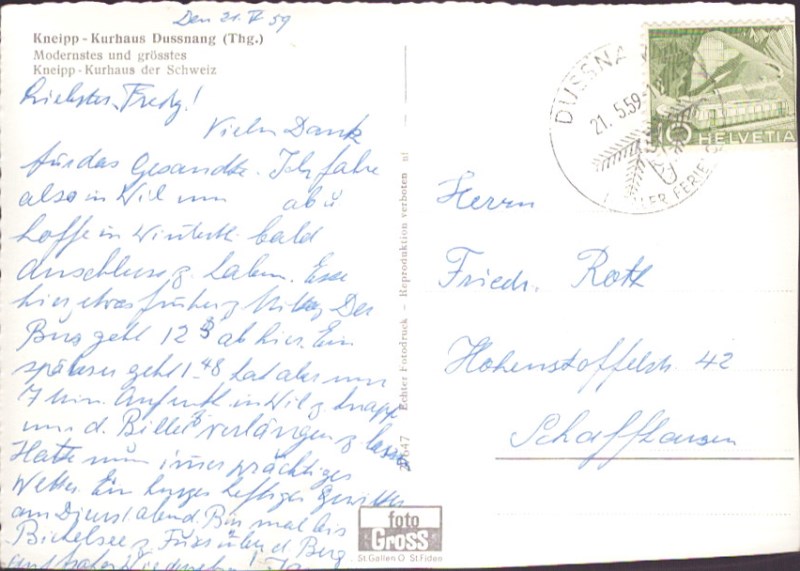 Den 21. V 59
Kneipp - Kurhaus Dussnang (Thg.)
Modernstes und grösstes
Kneipp - Kurhaus der Schweiz
Liebster Fredy!
Vielen Dank
für das Gesandte. Ich fahre
also in Wil um ab u
hoffe in Winterth. bald
Anschluss z. haben. Esse
hier etwas früher z Mittag. Der
Bus geht 12 ab hier. Ein
späterer geht 1 48 hat aber nur
7 Min. Aufenth. in Wil z knapp
um d. Billet verlängern z lassen
Hatte nun immer prächtiges
Wetter. Ein kurzes heftiges Gewitter
am Dienstabend. Bin mal bis
Bichelsee z Fuss über d. Berg
auf frohes Wiedersehn!
Echter Fotodruck - Reproduktion verboten
647
foto
GROSS
St Gallen O St Fiden
DUSSNA
21.5.59-1
FERIE
10 HELVETIA
Herrn
Friedr. Roth
Hohenstoffelstr. 42
Schaffhausen